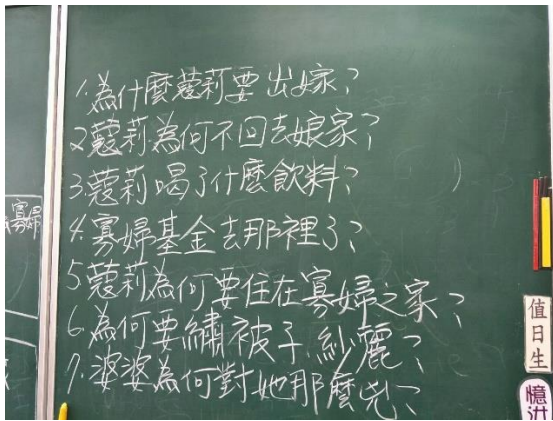 1.為什麼蔻莉要出嫁？
2蔻莉為何不回去娘家？
3.蔻莉喝了什麼飲料？
4.寡婦基金去那裡了？
5蔻莉為何要住在寡婦之家？
6.為何要繡被子、紗麗？
7.婆婆為何對她那麼兇？
寡婦
值日生
憶洪